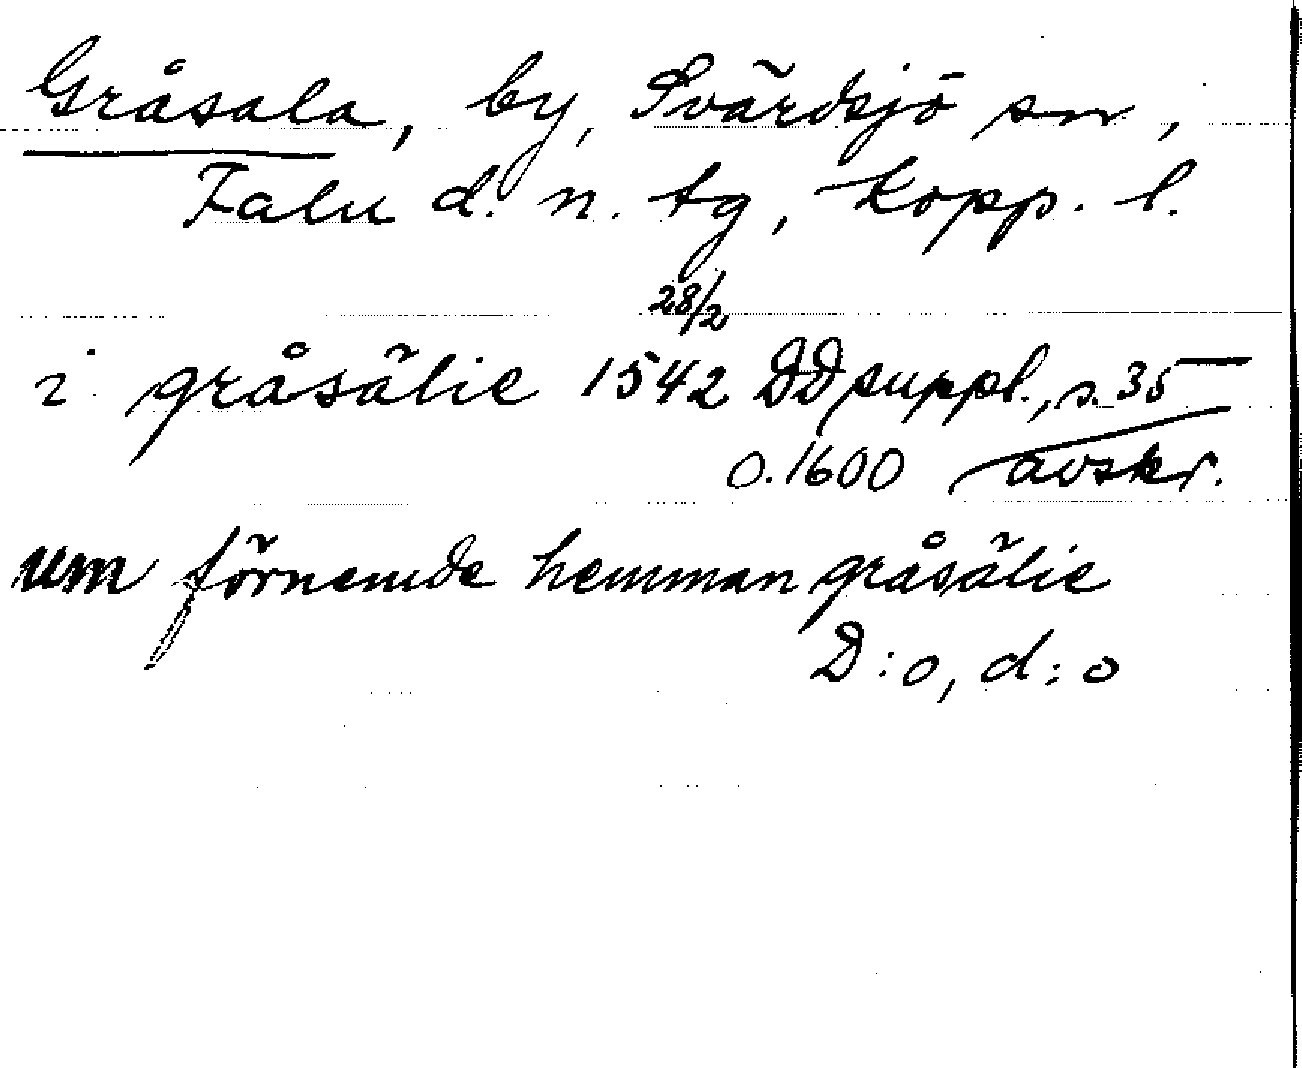 Gråsala, by, Svärdsjö sn,
Falu d. n. tg, Kopp. l.
28/2
i gråsälie 1542 DD suppl., s. 35
o. 1600 avskr.
um förnemde hemman gråsälie
D:o, d:o